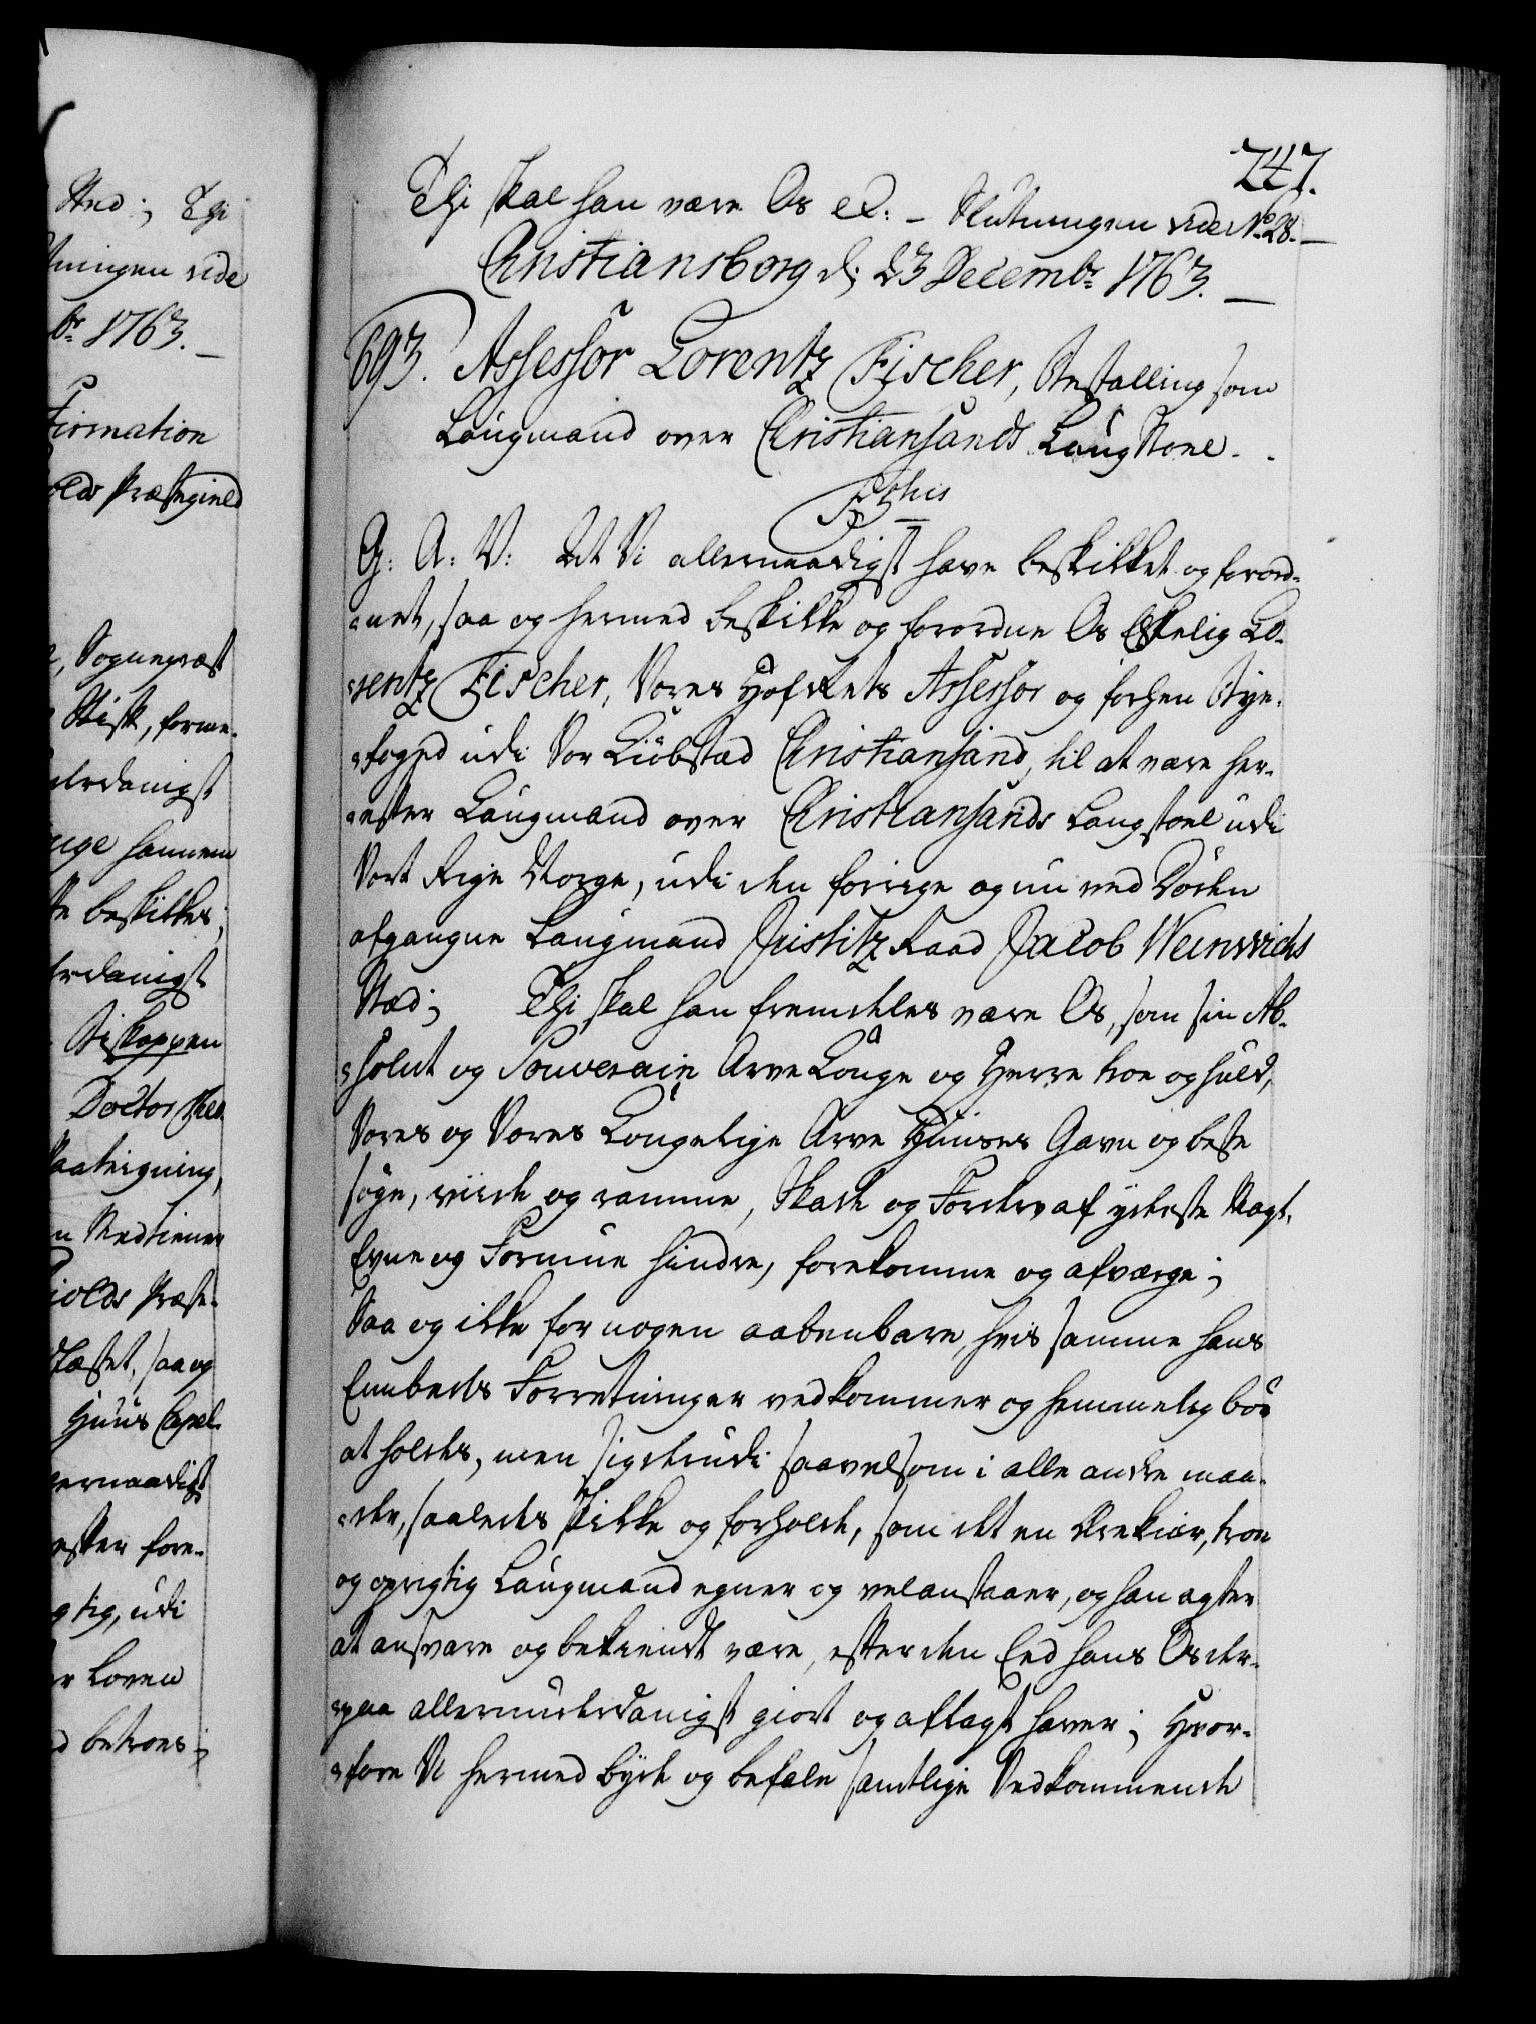 Sted; Thi
ningen vide
br 1763.
firmation
olds Præstegield
Sognepræst
Bisk, forme-
underdanigst
hannem
beskikkes;
derdanigst
Biskoppen
Doctor
Paategning,
Medtiener
iolds Præste-
læstet, saa og
Huus Capel-
lernaadigst
efter fore-
gtig, udi
er Loven
d betroes;
747.
Thi skal han være Os etc: - Slutningen vide No 28. -
Christiansborg d: 23 Decembr 1763. -
693. Assessor Lorentz Fischer, Bestalling som
Laugmand over Christiansands Laug Stoel. -
F5this
G: A: V: At Vi allernaadigst have beskikket og forord-
-net, saa og hermed beskikke og forordne Os Elskelig Lo-
-rentz Fischer, Vores Hofrets Assessor og forhen Bye-
-foged udi Vor Kiöbstad Christiansand, til at være her-
-efter Laugmand over Christiansands Laugstoel udi
Vort Rige Norge, udi den forrige og nu ved Döden
afgangne Laugmand Justitz Raad Jacob Weinwichs
Sted; Thi skal han fremdeles være Os, som sin Ab-
-solut og Souverain Arve Konge og Herre troe og huld,
Vores og Vores Kongelige Arve Huuses Gavn og beste
söge, viide og ramme, Skade og Fordervaf yderste Magt,
Evne og Formue hindre, forekomme og afværge;
Saa og ikke for nogen aabenbare, hvis samme hans
Embeds Forretninger vedkommer og hemmelig bör
at holdes, men sig derudi saavelsom i alle andre maa-
-der, saaledes skikke og forholde, som det en Ærekiær, troe
og oprigtig Laugmand egner og vel anstaaer, og han agter
at ansvare og bekiendt være, efter den Eed hans Os der-
-paa allerunderdanigst giort og aflagt haver; Hvor-
-fore Vi hermed byde og befale samtlige Vedkommende